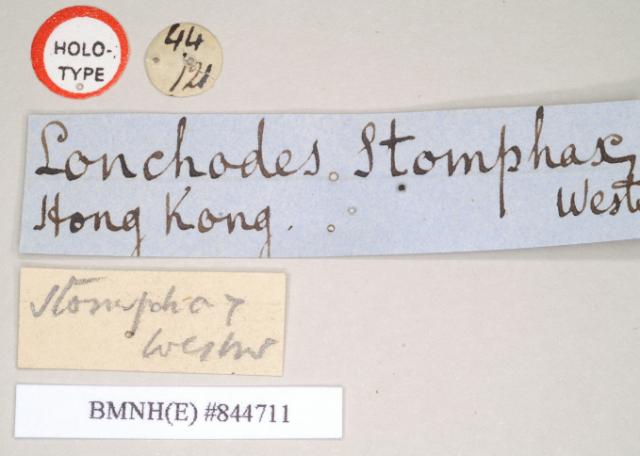 HOLO-
TYPE
44
121
Lonchodes. Stomphax,
Hong Kong.
Westw
Stomphax
Westw
BMNH(E) #844711